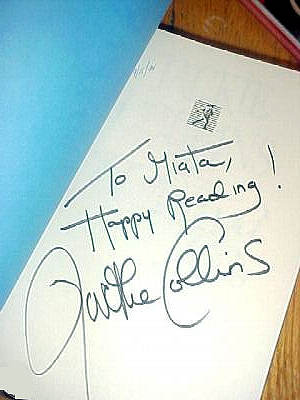 To Miata,
Happy Reading!
Jackie Collins